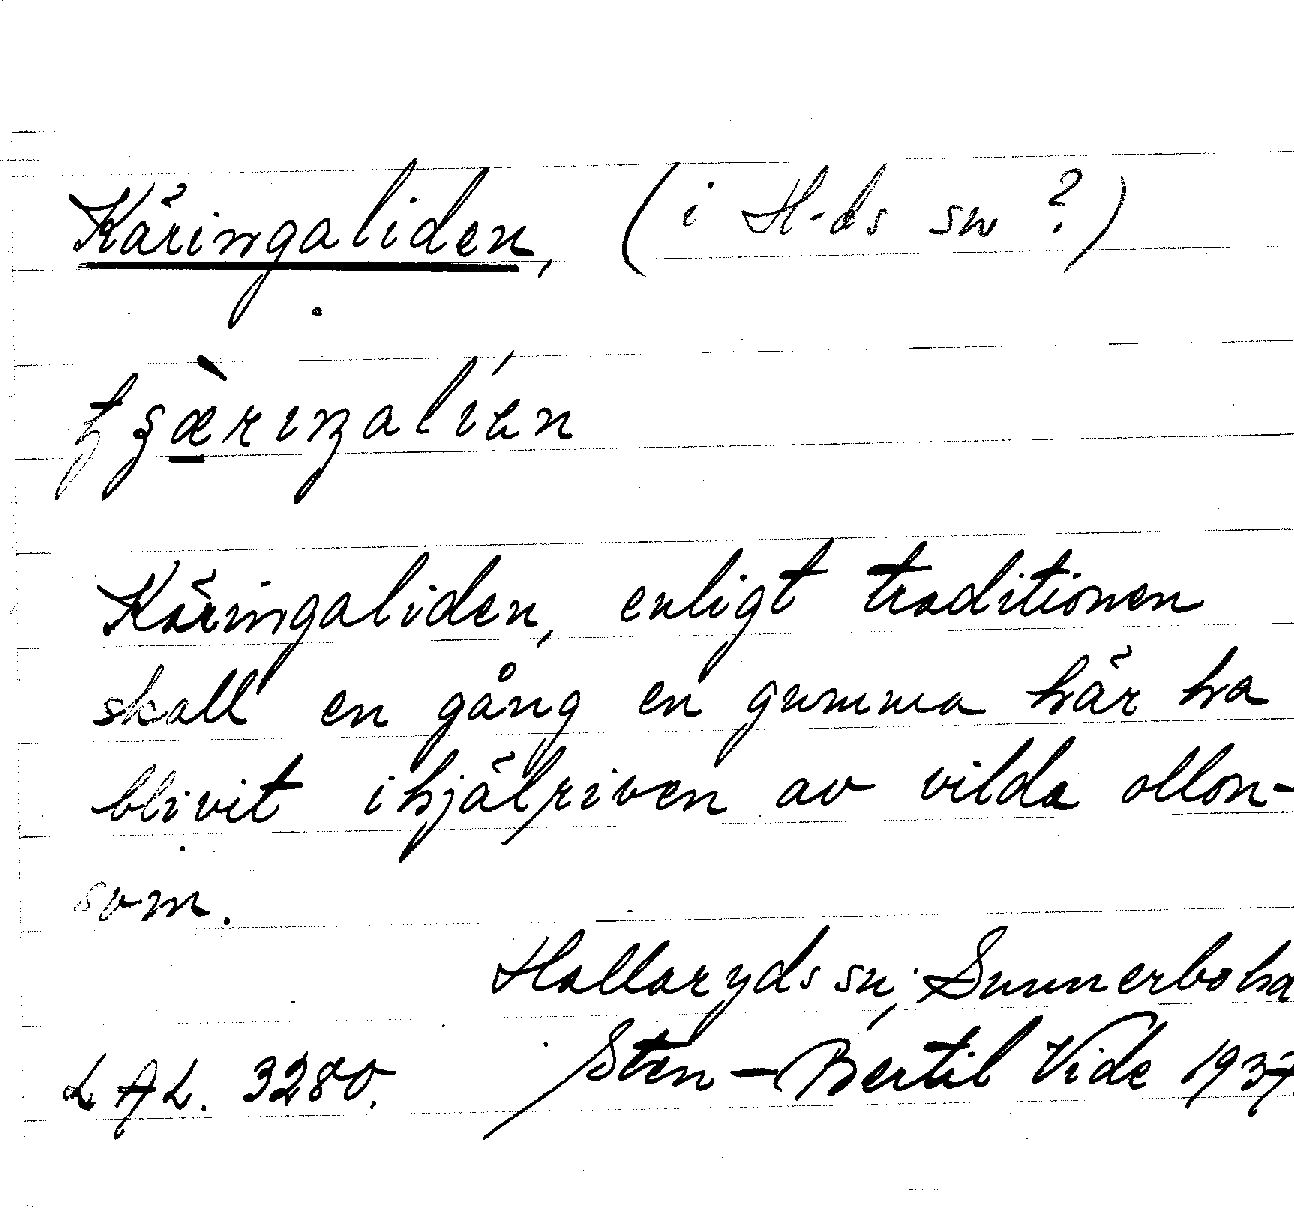 Käringaliden, (i H-ds sn ?)
Käringaliden, enligt traditionen
skall en gång en gumma här ha
blivit ihjälriven av vilda ollon-
svin.
Hallaryds sn, Sunnerbo hd
LAL. 3280. Sten-Bertil Vide 1937